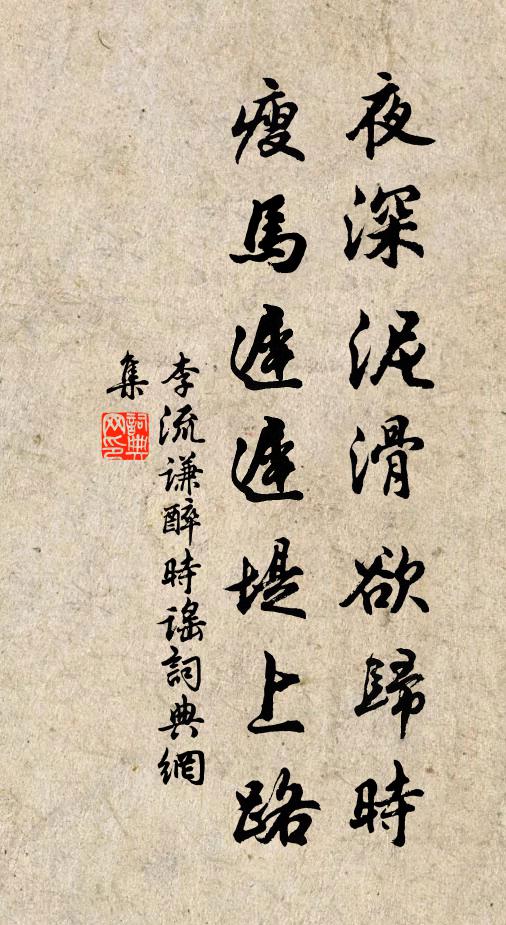 夜深泥滑欲歸時
瘦馬遲遲堤上路
李流謙醉時謠詞典網
集
詞典
网印